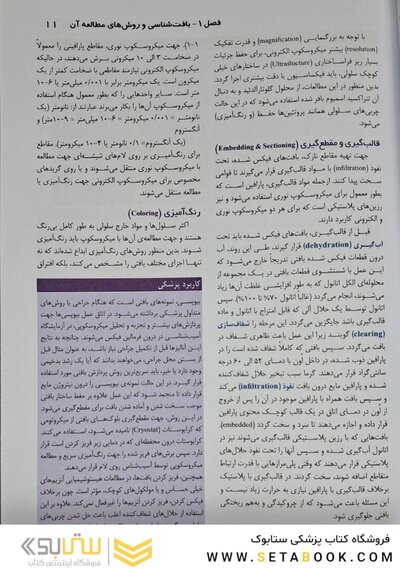 فصل ۱- بافت‌شناسی و روش‌های مطالعه آن ۱۱
با توجه به بزرگنمایی (magnification) و قدرت تفکیک
(resolution) بیشتر میکروسکوپ الکترونی، برای حفظ جزئیات
بسیار ریز فراساختاری (Ultrastructure) در ساختارهای خیلی
کوچک سلولی، باید فیکساسیون با دقت بیشتری اجرا گردد.
بدین منظور در این مطالعه، از محلول گلوتارآلدئید و به دنبال
آن تتراکسید اسمیوم بافر شده استفاده می‌شود که در این حالت
چربی‌های سلولی همانند پروتئین‌ها حفظ (و رنگ‌آمیزی)
می‌شود.
قالب‌گیری و مقطع‌گیری (Embedding & Sectioning)
جهت تهیه مقاطع نازک، بافت‌های فیکس شده، تحت
نفوذ (infiltration) با مواد قالب‌گیری قرار می‌گیرند تا قوامی
سخت پیدا کنند. ازجمله مواد قالب‌گیری، پارافین است که
بطور معمول برای میکروسکوپ نوری استفاده می‌شود و نیز
رزین‌های پلاستیکی است که برای هر دو میکروسکوپ نوری
و الکترونی کاربرد دارند.
قبل از قالب‌گیری، بافت‌های فیکس شده باید تحت
آب‌گیری (dehydration) قرار گیرند، طی این روند، آب
درون قطعات فیکس شده بافتی تدریجاً خارج می‌شود که
این عمل با شستشوی قطعات بافتی در یک مجموعه از
محلول‌های الکل اتانول که به طور افزایشی غلظت آن‌ها زیاد
می‌شوند، انجام می‌گردد (غالبا اتانول ۷۰٪ تا ۱۰۰٪). سپس
اتانول توسط یک حلال آلی که قابل امتزاج با اتانول و ماده
قالب‌گیری باشد جایگزین می‌گردد. این مرحله را شفاف‌سازی
(clearing) گویند زیرا این عمل باعث ظاهری شفاف در
بافت می‌گردد. سپس بافتی که کاملا شفاف شده است را در
پارافین ذوب شده، در داخل آون با دمای ۵۲ الی ۶۰ درجه
سانتی‌گراد قرار می‌دهند. گرما سبب تبخیر حلال شفاف‌کننده
شده و پارافین مایع درون بافت نفوذ (infiltration) می‌کند
و سپس بافت همراه با پارافین موجود در آن را پس از خروج
از آون در دمای اتاق در یک قالب کوچک محتوی پارافین
قرار داده و اجازه می‌دهند تا سرد و سخت گردد (embedded).
بافت‌هایی که با رزین پلاستیکی قالب‌گیری می‌شوند نیز در
اتانول آب‌گیری شده و سپس آنها را تحت نفوذ حلال‌های
پلاستیکی قرار می‌دهند که وقتی پلی‌مرازهایی با قدرت ارتباط
متقاطع اضافه شوند، سخت گردند. در قالب‌گیری با پلاستیک
برخلاف قالب‌گیری با پارافین نیازی به حرارت زیاد نیست و
این مسئله باعث می‌شود که از چروکیدگی و بهم ریختگی
بافت جلوگیری شود.
۱-۱). جهت میکروسکوپ نوری، مقاطع پارافینی را معمولاً
در ضخامت ۳ الی ۱۰ میکرونی برش می‌دهند، در حالیکه
میکروسکوپ الکترونی نیازمند مقاطعی با ضخامت کمتر از یک
میکرون است. یک میکرومتر برابر با ۰/۰۰۱ میلی‌متر یا ۶-۱۰
متر است. سایر واحدهایی را که بطور معمول هنگام استفاده
از میکروسکوپ آن‌ها را بکار می‌برند عبارتند از: نانومتر (یک
نانومتر= ۰/۰۰۱ میکرومتر= ۶-۱۰ میلی‌متر= ۹-۱۰متر) و
آنگستروم
(یک آنگستروم= ۰/۱ نانومتر یا ۴-۱۰ میکرومتر). مقاطع
برای رنگ‌آمیزی بر روی لام‌های شیشه‌ای جهت مطالعه
با میکروسکوپ نوری منتقل می‌شوند و یا روی گریدهای
مخصوص برای میکروسکوپ الکترونی جهت رنگ‌آمیزی یا
مطالعه منتقل می‌شوند.
رنگ‌آمیزی (Coloring)
اکثر سلول‌ها و مواد خارج سلولی به طور کامل بی‌رنگ
هستند و جهت مطالعه‌ی آن‌ها با میکروسکوپ باید رنگ‌آمیزی
شوند. بدین منظور روش‌های رنگ‌آمیزی ابداع شده‌اند که نه
تنها اجزای مختلف بافتی را مشخص می‌کنند، بلکه افتراق
کاربرد پزشکی
بیوپسی، نمونه‌های بافتی است که هنگام جراحی یا روش‌های
متداول پزشکی برداشته می‌شود. در اتاق عمل بیوپسی‌ها جهت
پردازش‌های بیشتر و تجزیه و تحلیل میکروسکوپی، در آزمایشگاه
آسیب‌شناسی در درون فرمالین فیکس می‌شوند. چنانچه به نتایج
این آنالیزها قبل از تکمیل جراحی نیاز باشد، به عنوان مثال قبل
از بستن محل جراحی، می‌خواهند بدانند که آیا یک رشد بدخیمی
وجود دارد یا خیر، باید سریع‌ترین روش پردازش بافتی مورد استفاده
قرار گیرد. در این حالت نمونه‌ای بیوپسی را درون نیتروژن مایع
قرار داده تا منجمد شود که این عمل علاوه بر حفظ ساختار بافتی
موجب سخت شدن و آماده شدن بافت برای مقطع‌گیری می‌شود.
در این روش جهت مقطع‌گیری بلوک‌های بافتی از میکروتومی
که کرایوستات (Cryostat) نامیده می‌شود، استفاده می‌کنند.
کرایوستات درون محفظه‌ای که در دمایی زیر فریز کردن است قرار
دارد. سپس برش‌های فریز شده را جهت رنگ‌آمیزی سریع و مطالعه
میکروسکوپی توسط آسیب‌شناس روی لام قرار می‌دهند.
همچنین، فریز کردن بافت‌ها، در مطالعات هیستوشیمیایی آنزیم‌های
خیلی حساس و یا مولکول‌های کوچک، مؤثر است. چون برخلاف
فیکس کردن، فریز کردن آنزیم‌ها را غیرفعال نمی‌کند. علاوه بر این
استفاده از حلال‌های شفاف‌کننده اغلب باعث حل شدن چربی‌های
فروشگاه کتاب پزشکی ستابوک
WWW.SETABOOK.COM
ستابوک
فروشگاه اینترنتی کتاب